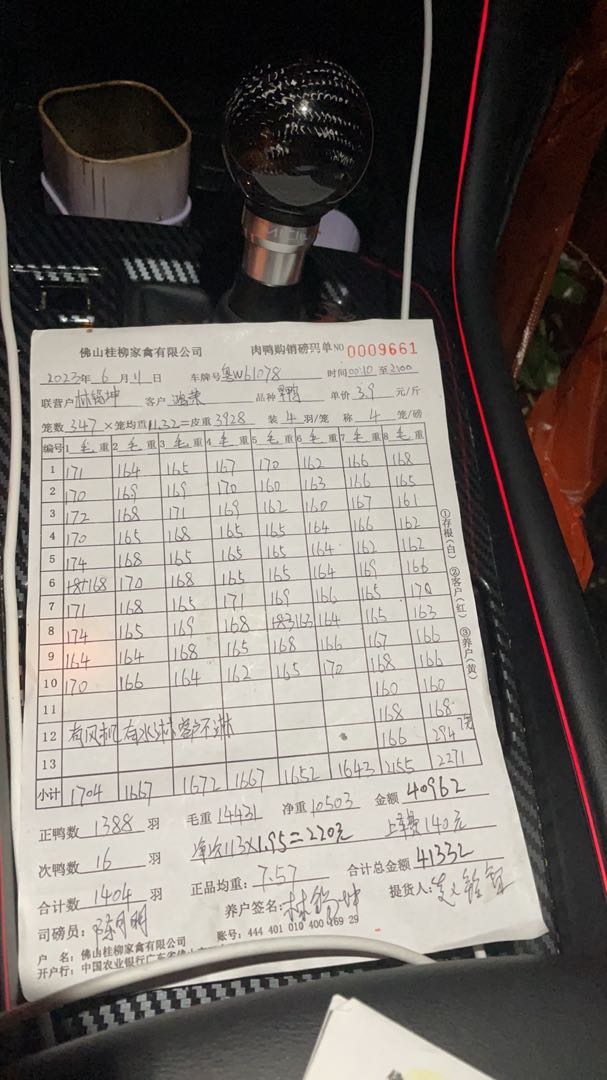 佛山桂柳家禽有限公司 肉鸭购销磅码单 NO 0009661
2023年 6月 11日 车牌号 粤W61078 时间 00:10 至 2100
联营户 林锡坤 客户 鸿荣 品种 单价 3.9 元/斤
笼数 347 ×笼均重 11.32=皮重 3928 装 4 羽/笼 称 4 笼/磅
编号 1 毛 重 2 毛 重 3 毛 重 4 毛 重 5 毛 重 6 毛 重 7 毛 重 8 毛 重
1 171 164 165 167 170 162 166 168
2 170 169 169 170 160 163 166 165
3 172 168 171 169 162 160 167 161
4 170 165 168 165 165 164 166 162
5 174 168 165 165 165 164 162 162
6 168 170 168 165 165 164 169 166
7 171 168 165 171 169 166 165 170
8 174 165 169 168 163 164 165 163
9 164 164 168 165 168 166 167 166
10 170 166 164 162 165 170 168 166
11 160 160
12 有风机 有水淋 客户不淋 168 168
13 166 294 7笼
小计 1704 1667 1672 1667 1652 1643 2155 2271
①存根(白) ②客户(红) ③养户(黄)
正鸭数 1388 羽 毛重 14431 净重 10503 金额 40962
次鸭数 16 羽 113×1.95=220元 上车费140元
合计数 1404 羽 正品均重: 7.57 合计总金额 41332
司磅员: 养户签名: 林锡坤 提货人:
户 名: 佛山桂柳家禽有限公司 账号: 444 401 010 400 169 29
开户行: 中国农业银行广东省佛山市